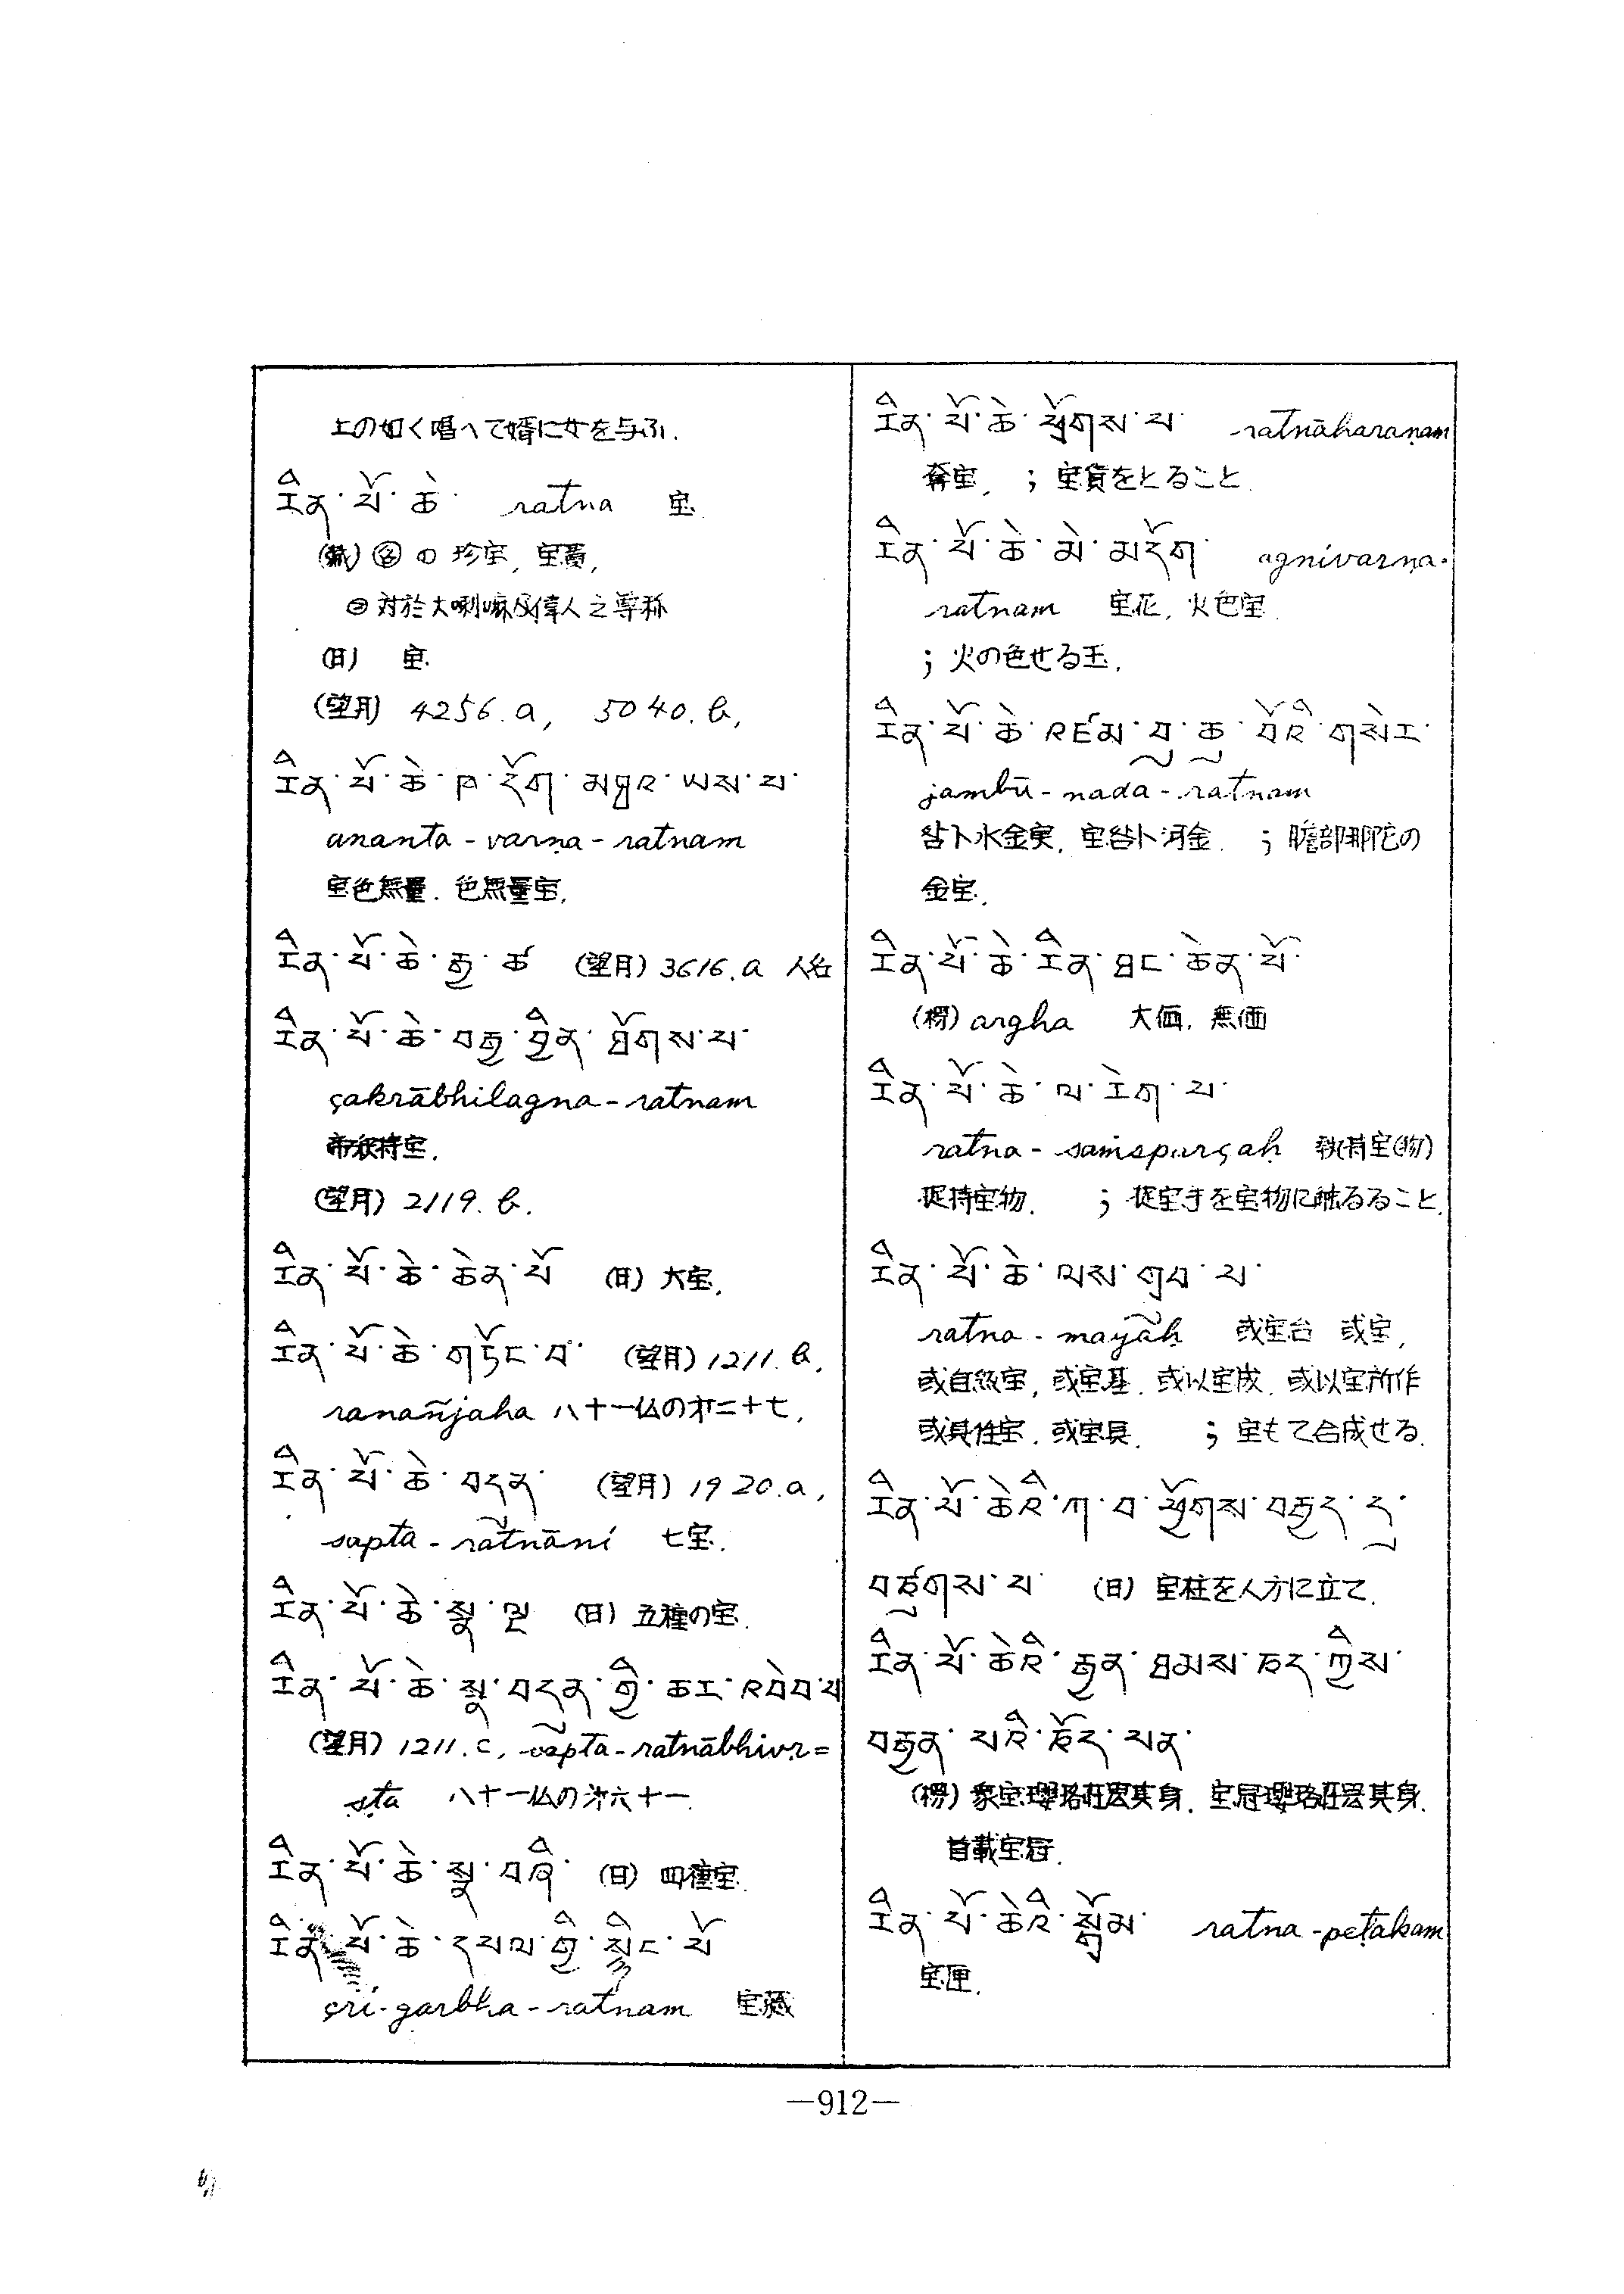 上の如く唱へて婿に女を与ふ.
རིན་པོ་ཆེ་ ratna 宝
(蔵) ㊔ ㋑ 珍宝, 宝貴,
㋺ 対於大喇嘛及偉人之尊称
(日) 宝
(望月) 4256.a, 5040.b,
རིན་པོ་ཆེ་ཁ་དོག་མཐའ་ཡས་པ་
ananta-varṇa-ratnam
宝色無量. 色無量宝.
རིན་པོ་ཆེ་རྒྱ་ཚ (望月) 3616.a 人名
རིན་པོ་ཆེ་བརྒྱ་བྱིན་ཐོགས་པ་
çakrābhilagna-ratnam
帝釈持宝.
(望月) 2119.b.
རིན་པོ་ཆེ་ཆེན་པོ (日) 大宝.
རིན་པོ་ཆེ་གཏོང་བ་ (望月) 1211.b,
ranañjaha 八十一仏の才二十七,
རིན་པོ་ཆེ་བདུན་ (望月) 1920.a,
sapta-ratnāni 七宝.
རིན་པོ་ཆེ་སྣ་ལྔ (日) 五種の宝.
རིན་པོ་ཆེ་སྣ་བདུན་གྱི་ཆར་འབེབ་པ
(望月) 1211.c, sapta-ratnābhivr̥=
ṣṭa 八十一仏の才六十一.
རིན་པོ་ཆེ་སྣ་བཞི་ (日) 四種宝.
རིན་པོ་ཆེ་དཔལ་གྱི་སྙིང་པོ
çrī-garbha-ratnam 宝蔵
རིན་པོ་ཆེ་ཕྲོགས་པ་ ratnāharaṇam
奪宝, ; 宝貨をとること.
རིན་པོ་ཆེ་མེ་མདོག་ agnivarṇa-
ratnam 宝花, 火色宝.
; 火の色せる玉.
རིན་པོ་ཆེ་འཛམ་བུ་ཆུ་བོའི་གསེར་
jambū-nada-ratnam
贍卜水金宝, 宝贍卜河金. ; 瞻部那陀の
金宝.
རིན་པོ་ཆེ་རིན་ཐང་ཆེན་པོ་
(楞) argha 大価, 無価
རིན་པོ་ཆེ་ལ་རེག་པ་
ratna-saṁsparçaḥ 執持宝(物)
捉持宝物. ; 捉宝手を宝物に触るること.
རིན་པོ་ཆེ་ལས་གྲུབ་པ་
ratna-mayāḥ 或宝台 或宝,
或自然宝, 或宝基. 或以宝成. 或以宝所作
或具性宝. 或宝具. ; 宝もて合成せる.
རིན་པོ་ཆེའི་ཀ་བ་ཕྱོགས་བརྒྱད་དུ་
བཙུགས་པ་ (日) 宝柱を八方に立て.
རིན་པོ་ཆེའི་རྒྱན་ཐམས་ཅད་ཀྱིས་
བརྒྱན་པའི་ཅོད་པན་
(楞) 衆宝瓔珞荘厳其身. 宝冠瓔珞荘厳其身.
首載宝冠.
རིན་པོ་ཆེའི་སྒྲོམ་ ratna-peṭakam
宝匣.
—912—